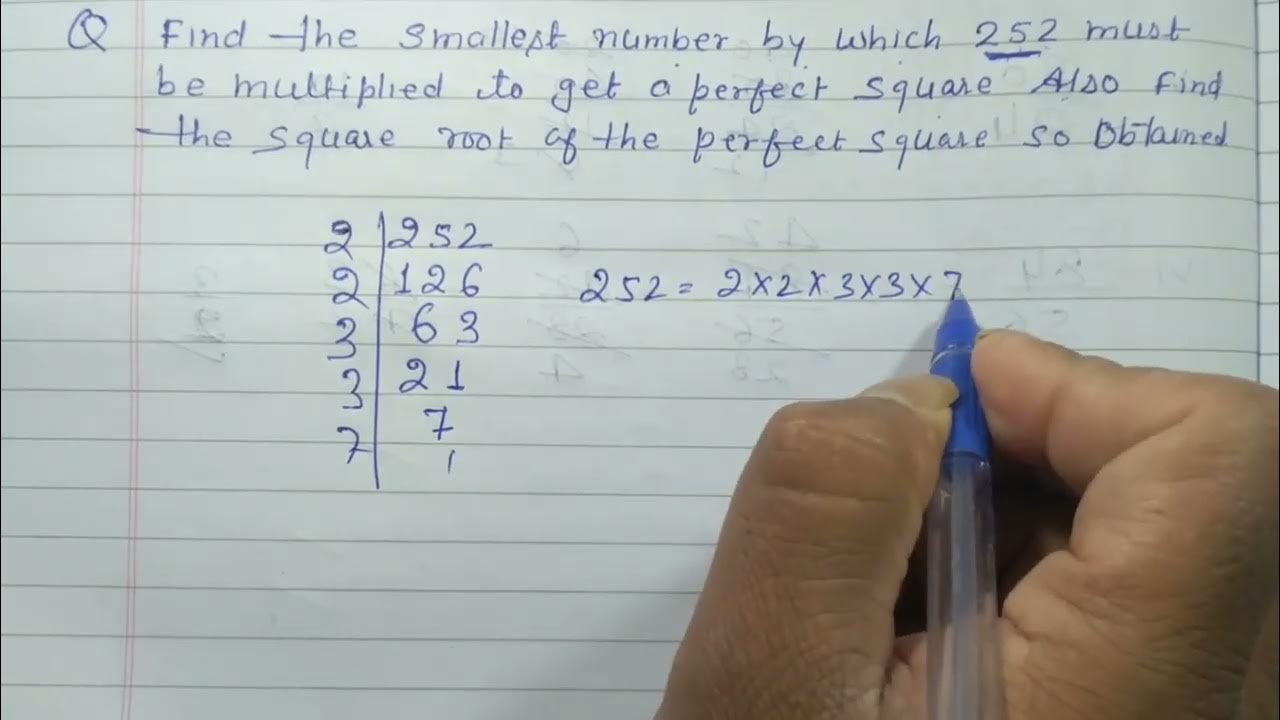 Q Find the smallest number by which 252 must
be multiplied to get a perfect square Also find
the square root of the perfect square so obtained
2 | 252
2 | 126 252 = 2×2×3×3×7
3 | 63
3 | 21
7 | 7
1